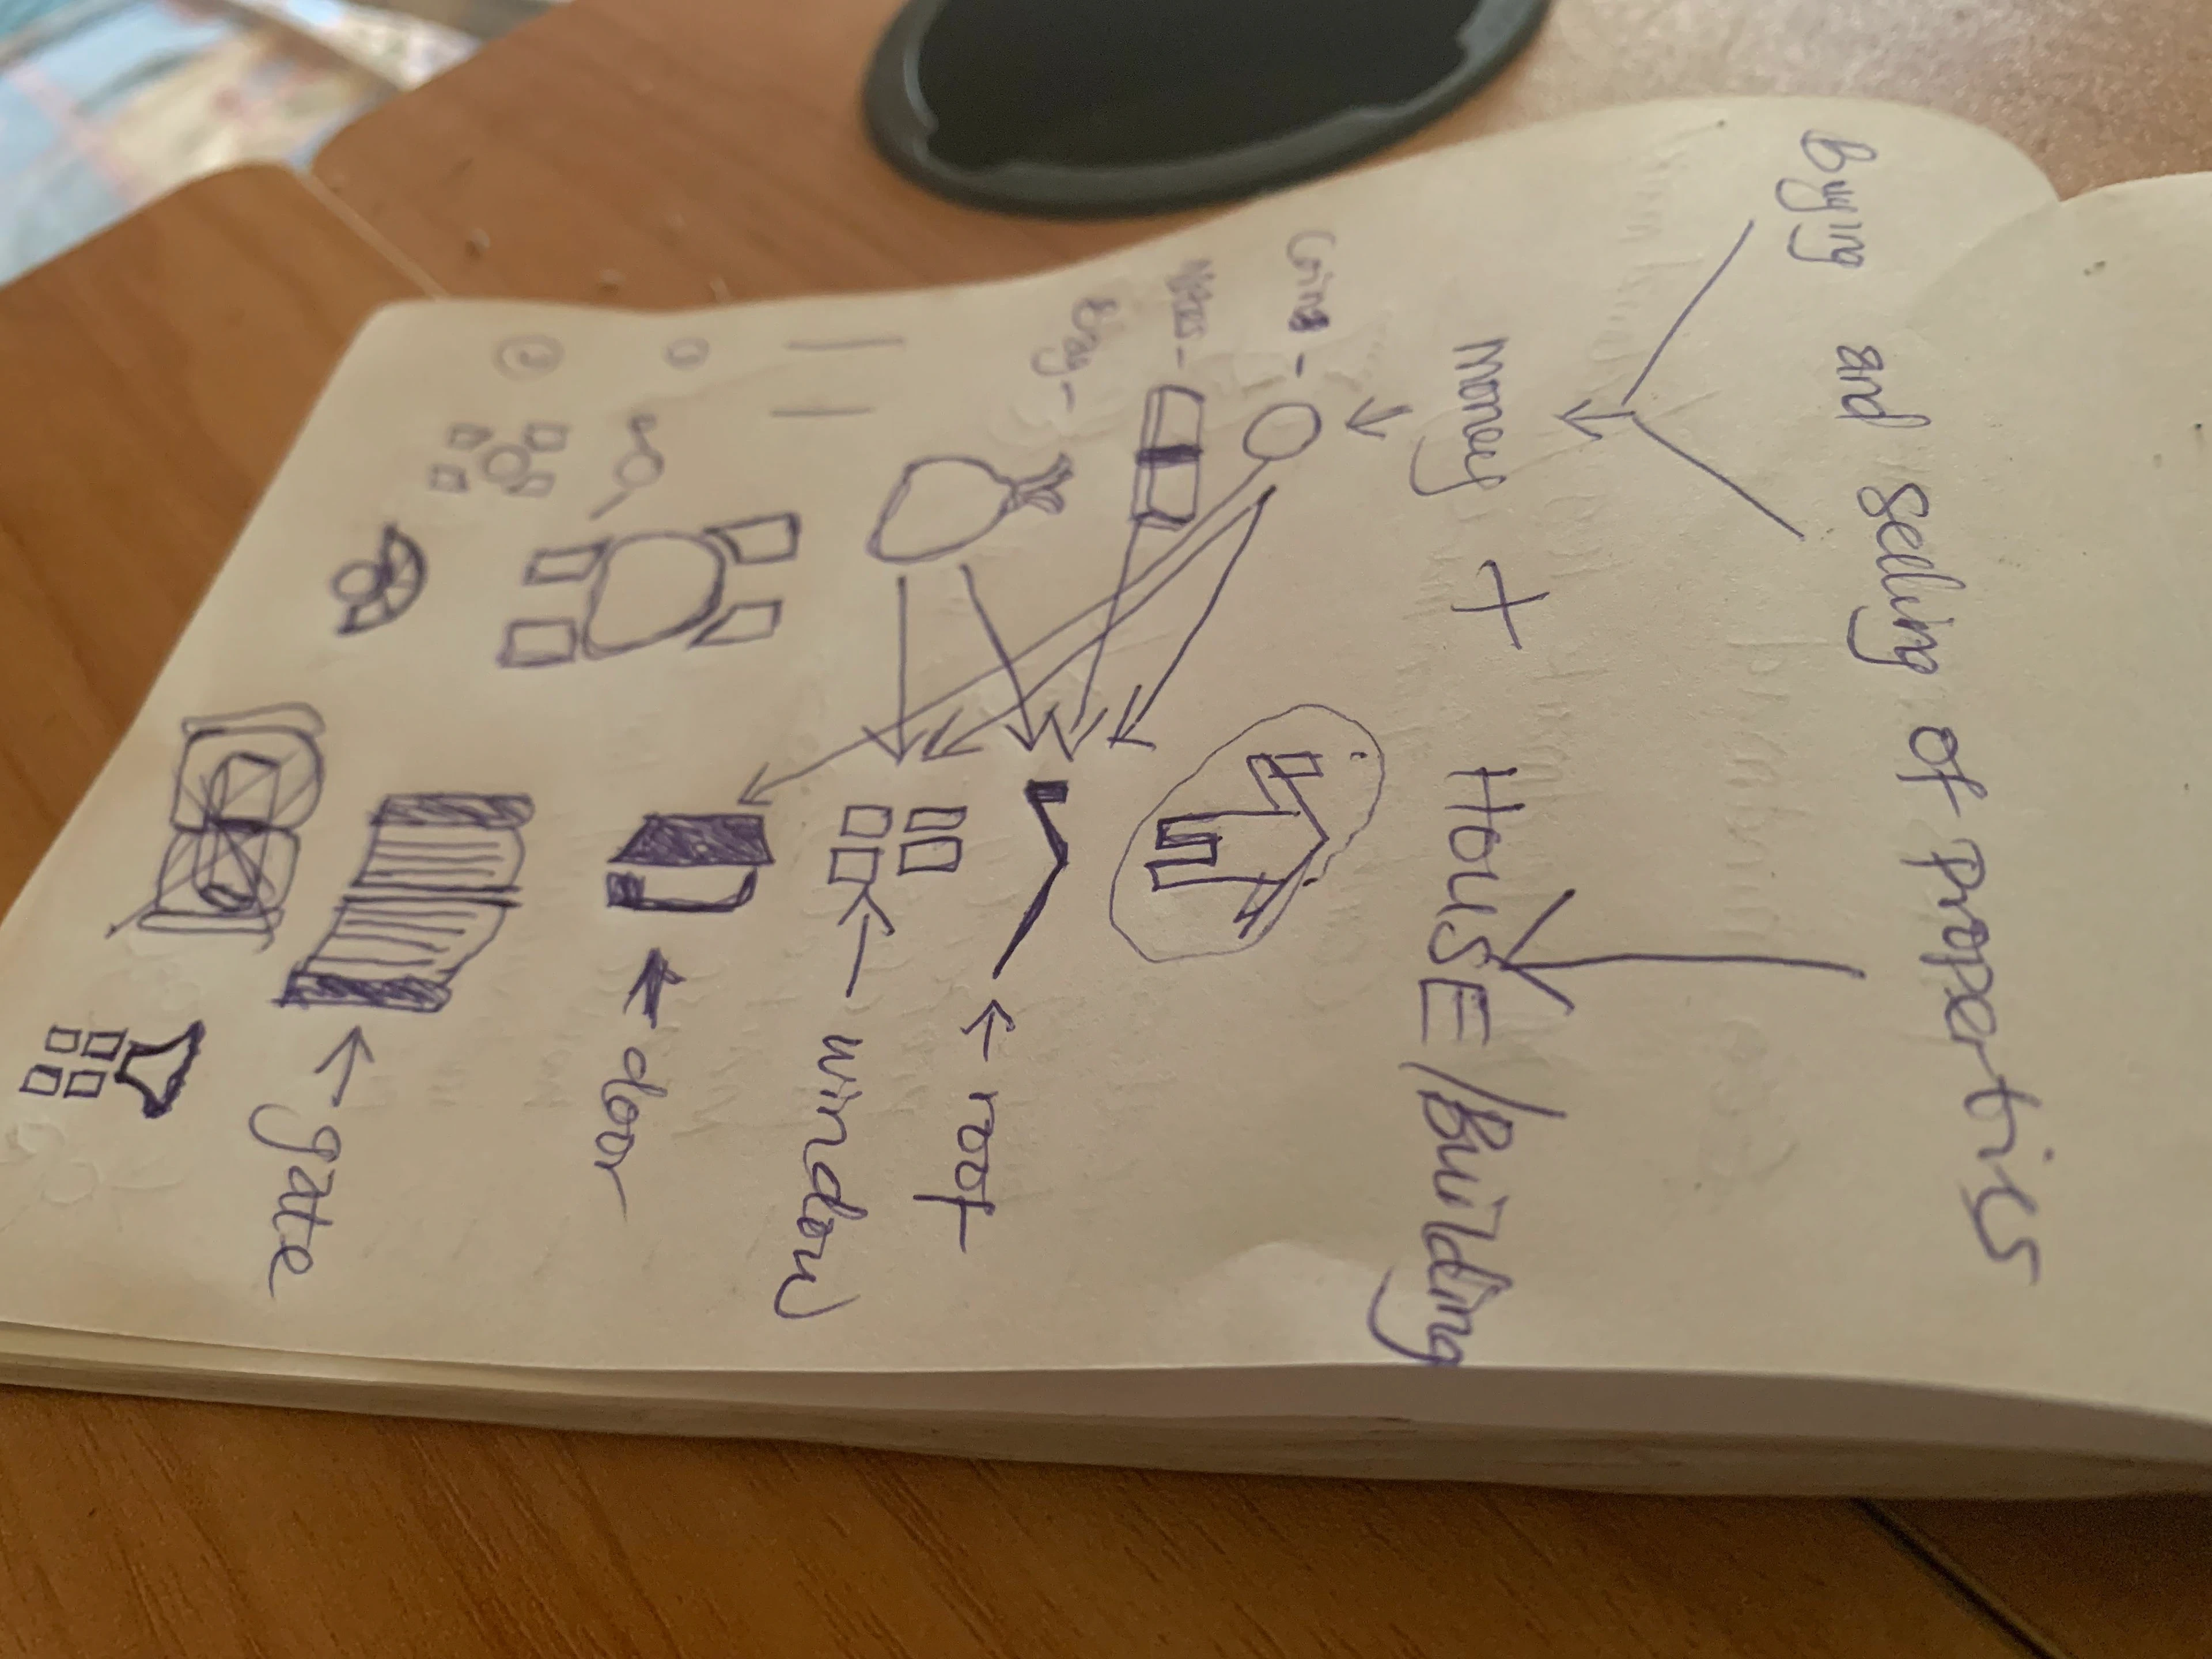 Buying and selling of propertis
Money + HOUSE/Building
Coins -
Notes -
Bag -
roof
window
door
gate